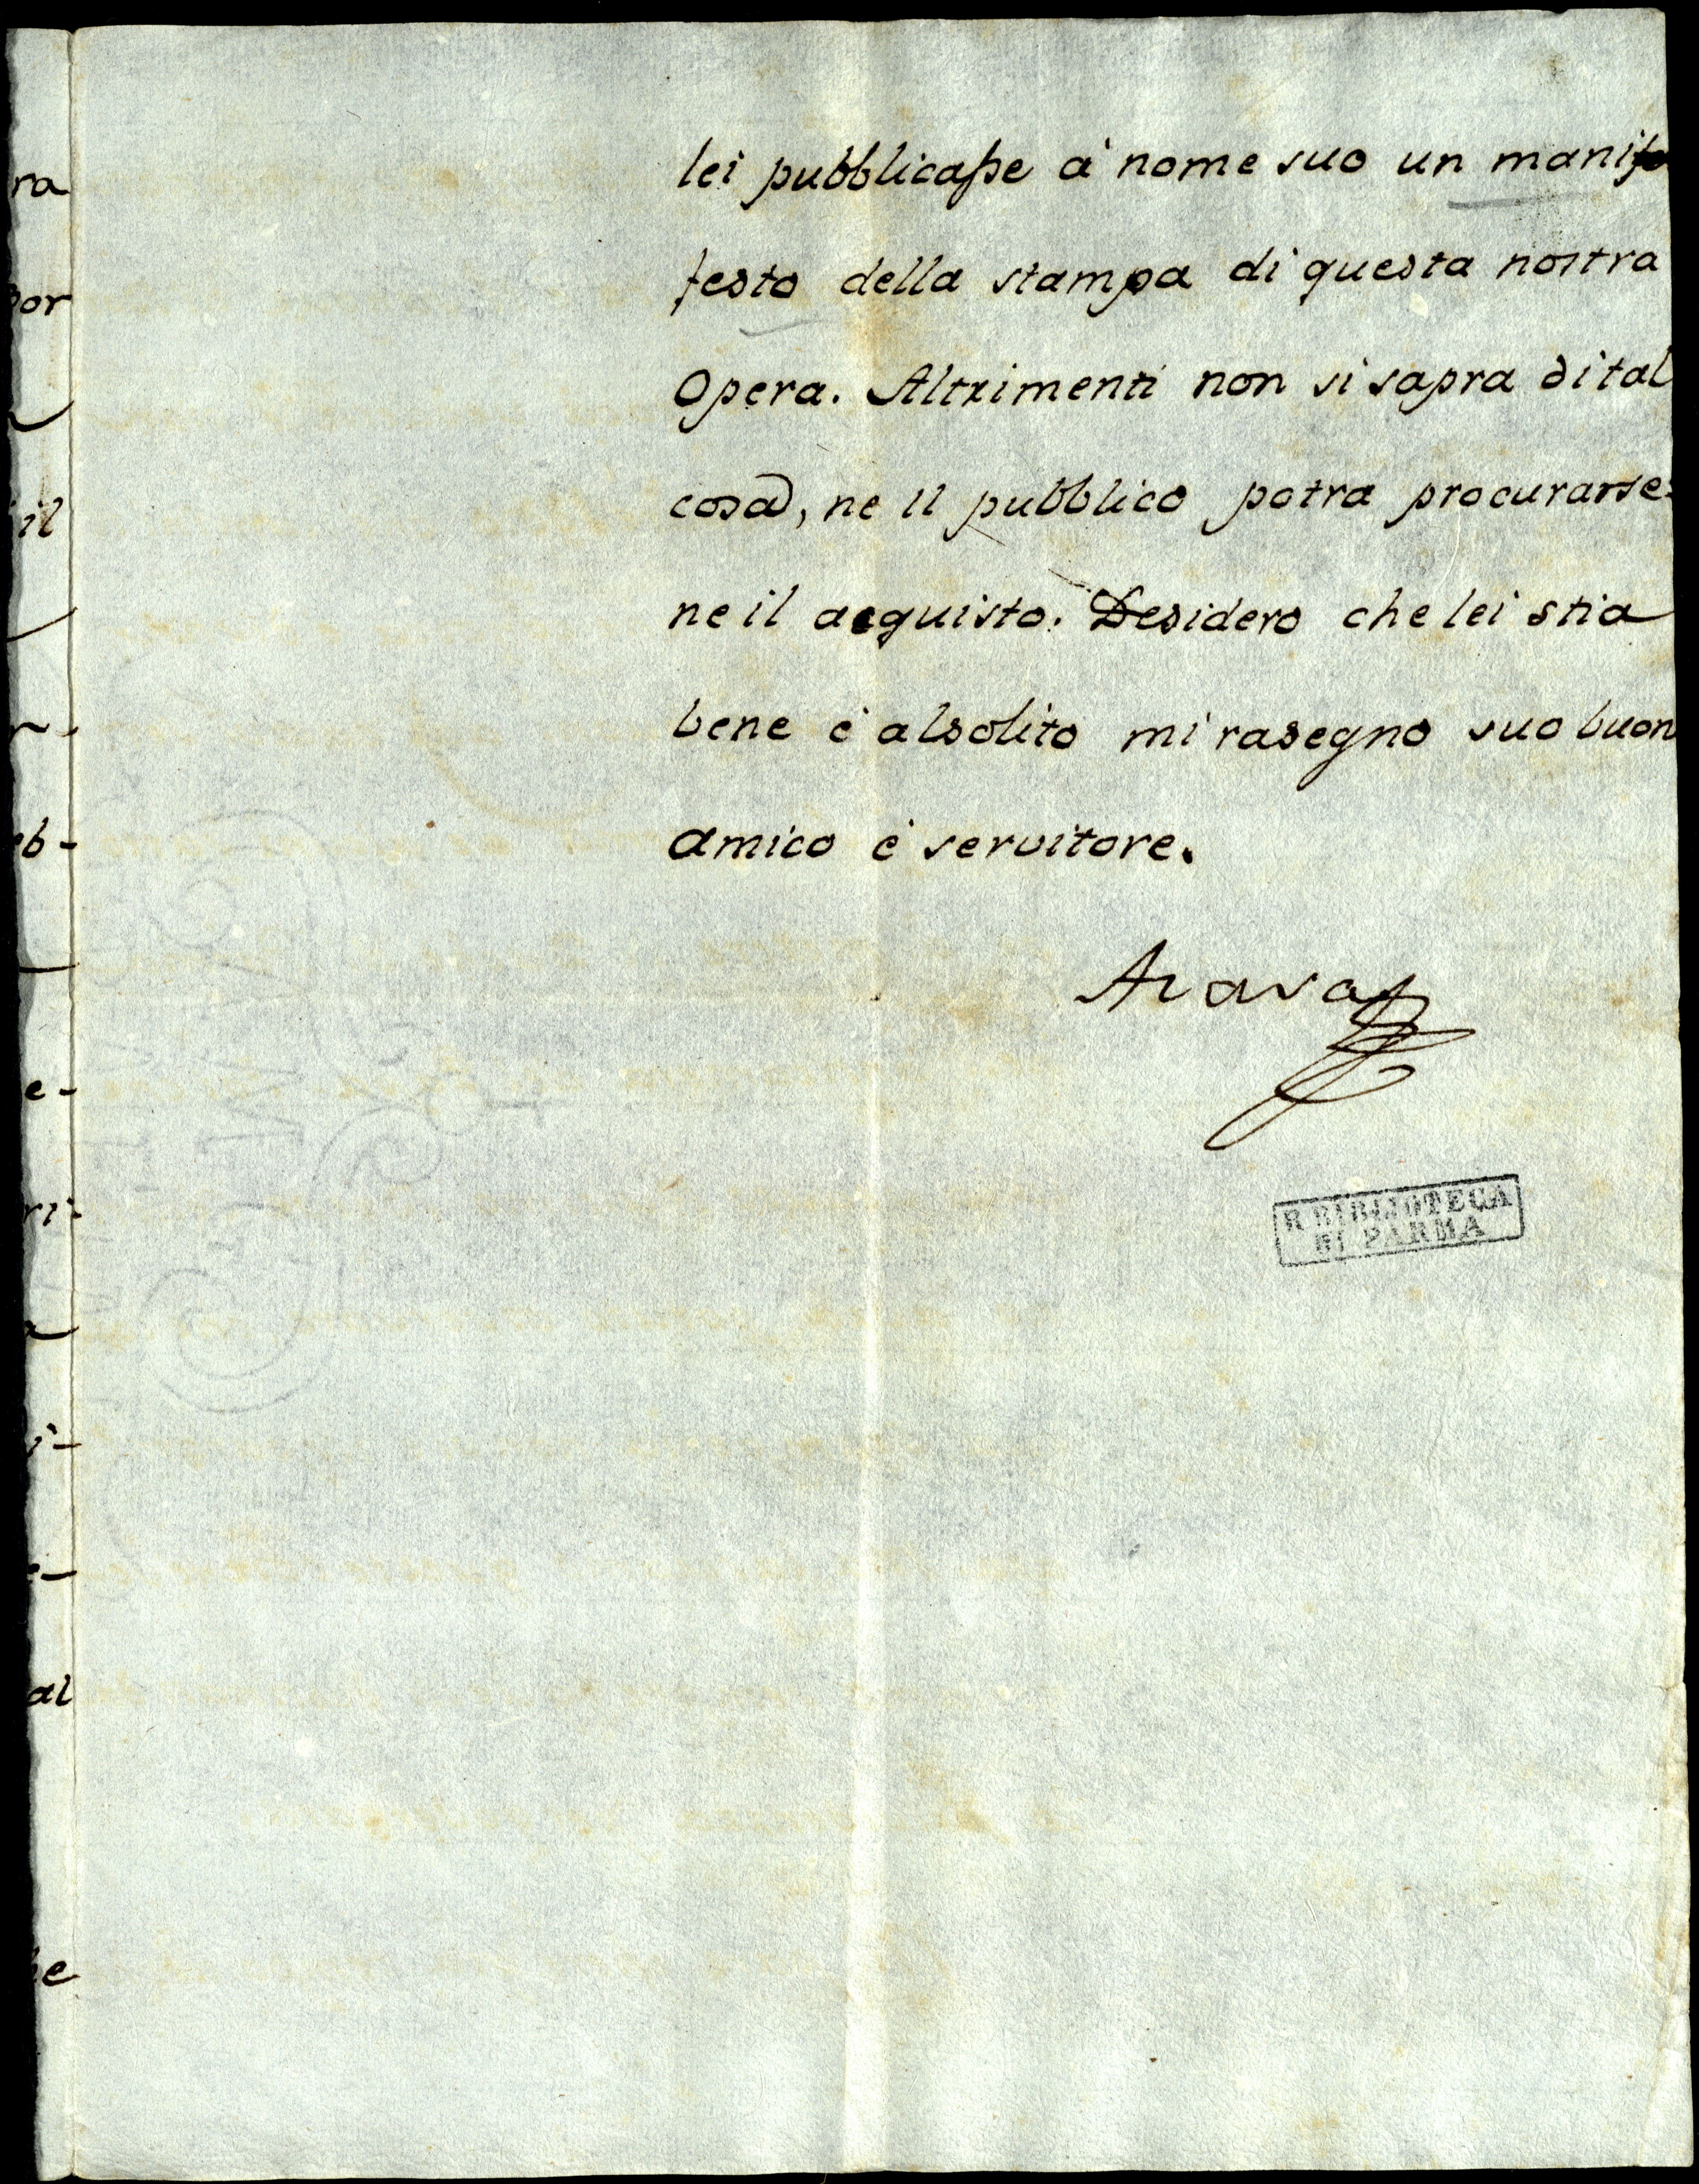 lei pubblicasse à nome suo un manife
festo della stampa di questa nostra
Opera. Altrimenti non si sapra di tal
cosa, ne il pubblico potra procurarse-
ne il acquisto. Desidero che lei stia
bene è al solito mi rasegno suo buon
amico è servitore.
R BIBLIOTECA
DI PARMA
ra
or
il
eb-
e-
ri-
al